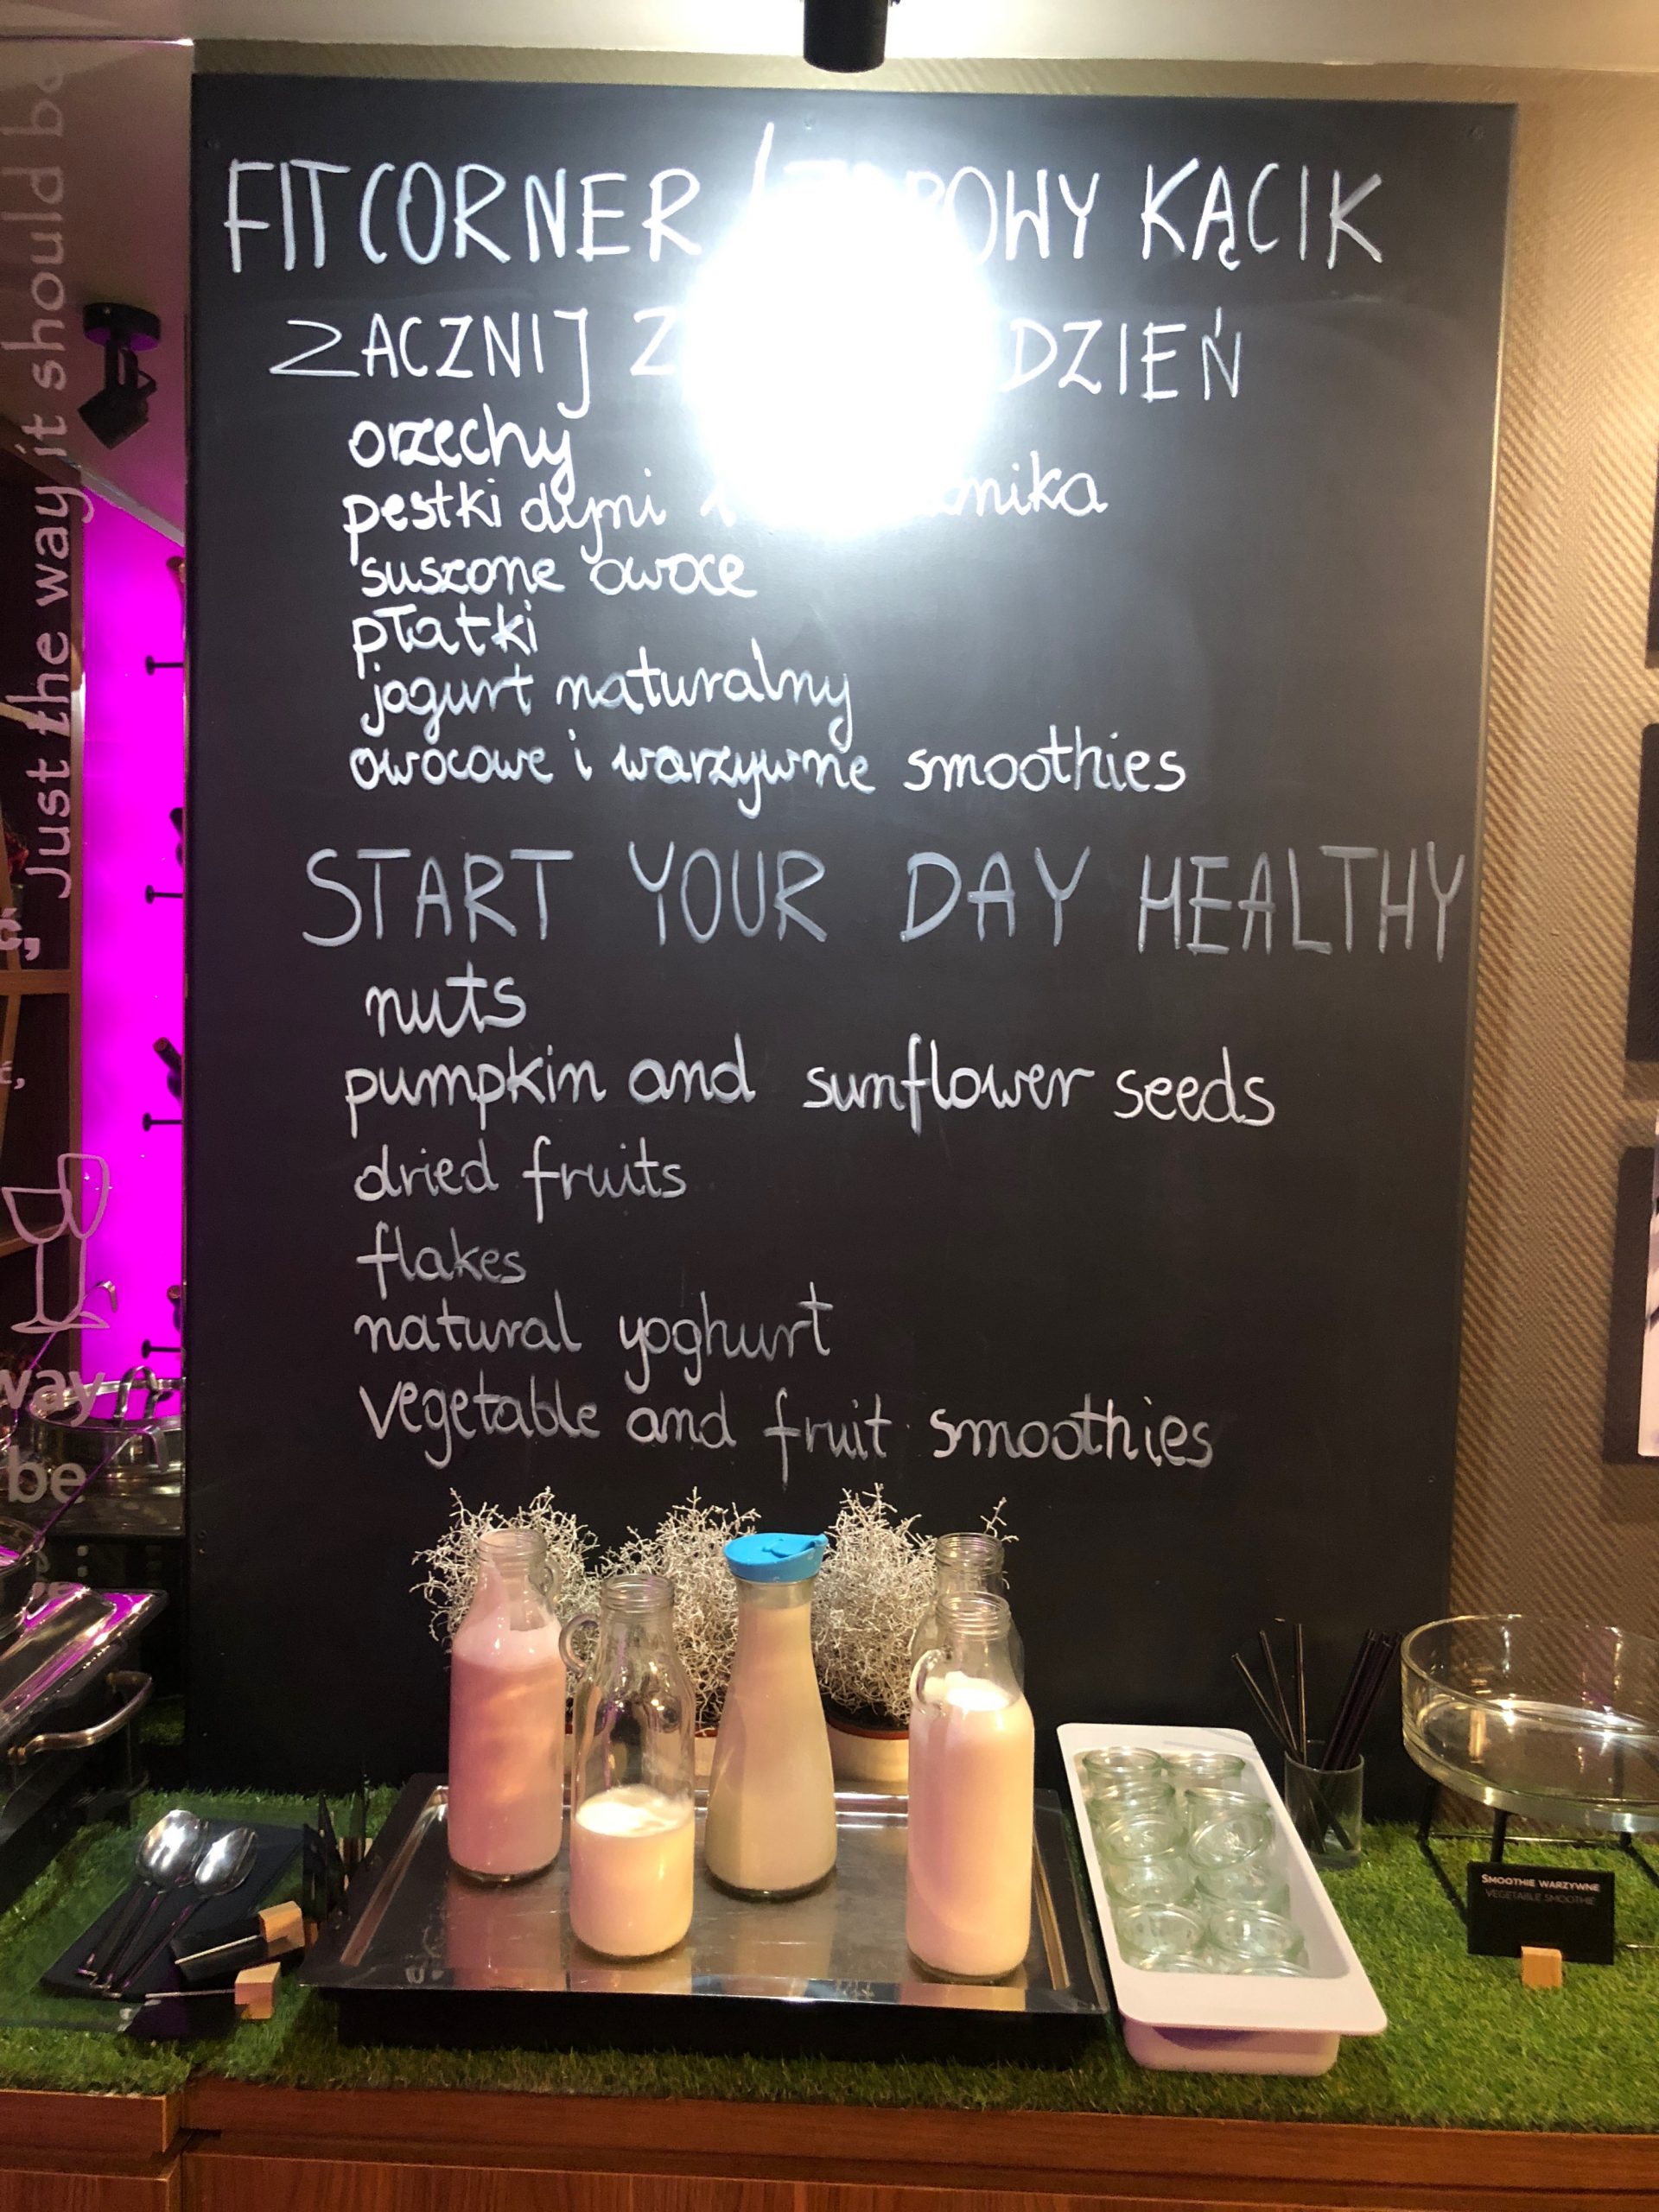 FIT CORNER / KĄCIK
ZACZNIJ DZIEŃ
orzechy
pestki dyni i
suszone owoce
płatki
jogurt naturalny
owocowe i warzywne smoothies
START YOUR DAY HEALTHY
nuts
pumpkin and sunflower seeds
dried fruits
flakes
natural yoghurt
vegetable and fruit smoothies
Just the way it should be
way
be
SMOOTHIE WARZYWNE
VEGETABLE SMOOTHIE